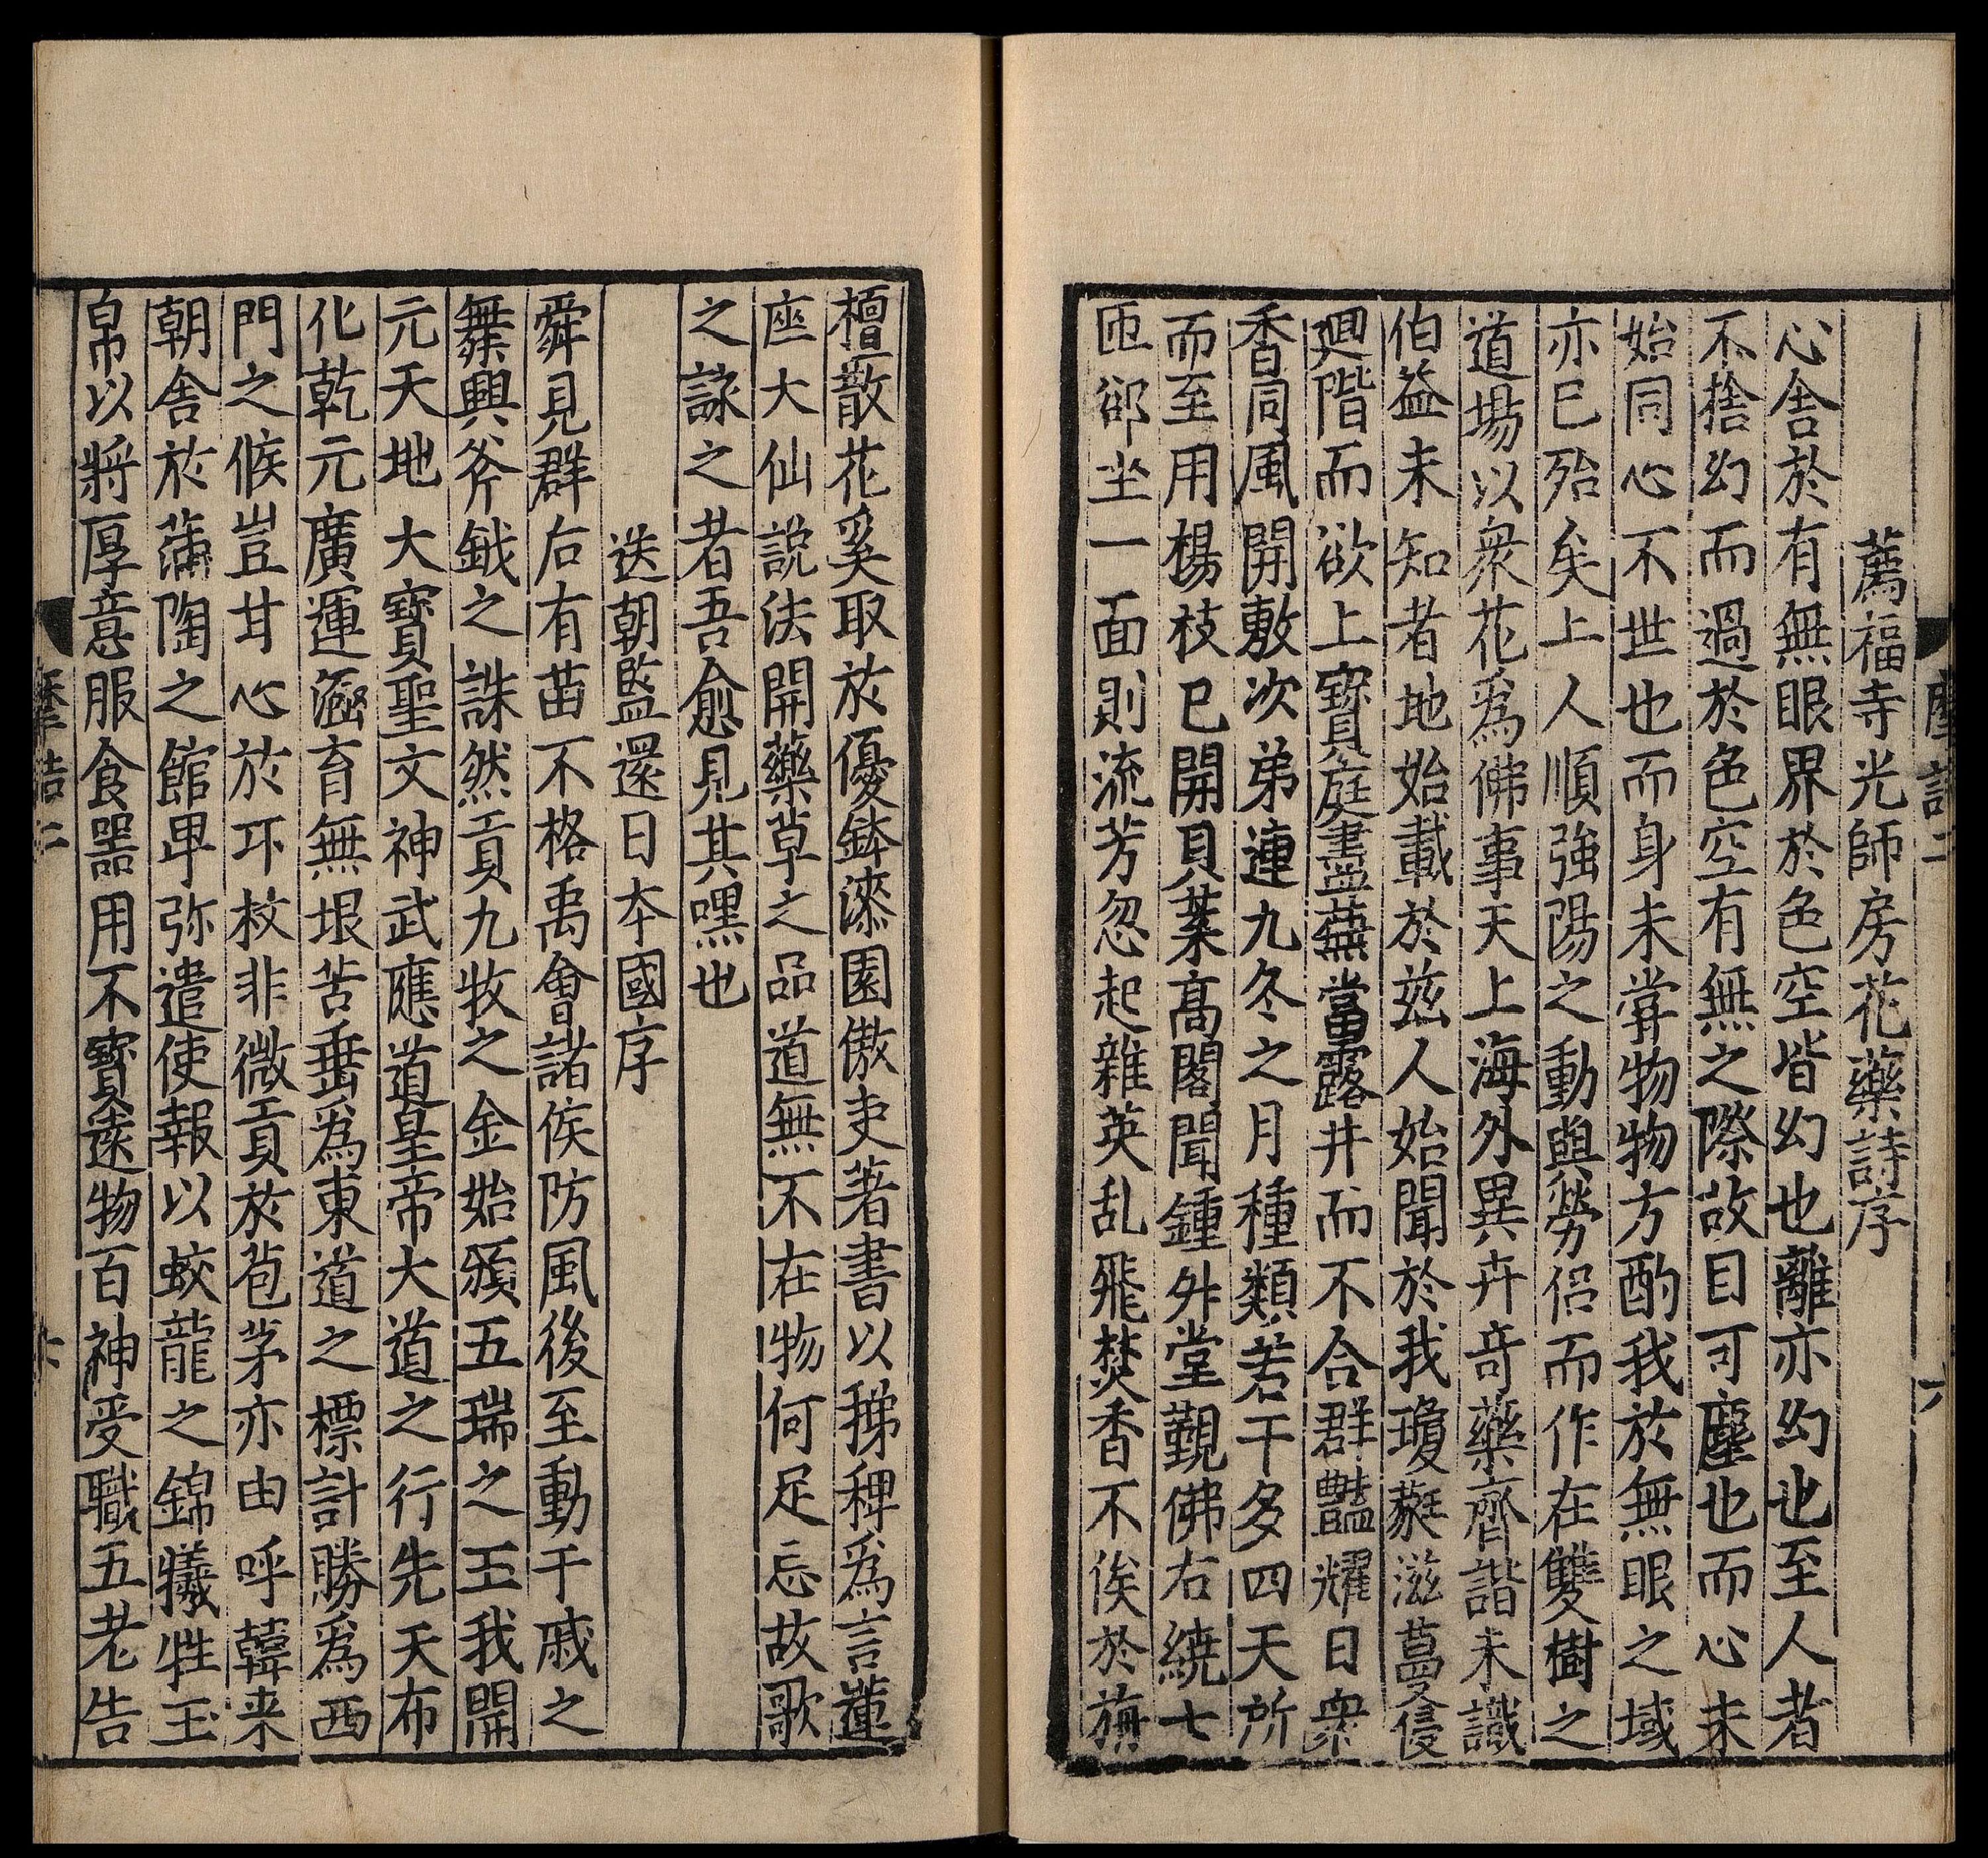 薦福寺光師房花藥詩序
心舎於有無眼界於色空皆幻也離亦幻也至人者
不捨幻而過於色空有無之際故目可塵也而心未
始同心不世也而身未甞物物方酌我於無眼之域
亦已殆矣上人順強陽之動與勞侣而作在雙樹之
道場以衆花爲佛事天上海外異卉竒藥齊諧未識
伯益未知者地始載於茲人始聞於我瓊蕤滋蔓侵
廻階而欲上寶庭盡蕪當露井而不合群豔耀日衆
香同風開敷次弟連九冬之月種類若干多四天所
而至用楊枝已開貝葉髙閣聞鍾升堂覲佛右繞七
匝郤坐一面則流芳忽起雜英乱飛焚香不俟於旃
檀散花奚取於優鉢漆園傲吏著書以稊稗爲言蓮
座大仙説法開藥草之品道無不在物何足忘故歌
之詠之者吾愈見其嘿也
送朝監還日夲國序
舜見群后有苗不格禹會諸侯防風後至動干戚之
舞興斧鉞之誅然貢九牧之金始頒五瑞之玉我開
元天地大寶聖文神武應道皇帝大道之行先天布
化乾元廣運涵育無垠苦垂爲東道之標計勝爲西
門之候豈甘心於邛杖非微貢於苞茅亦由呼韓来
朝舎於蒲陶之館卑弥遣使報以蛟龍之錦犧牲玉
帛以將厚意服食噐用不寶遠物百神受職五老告